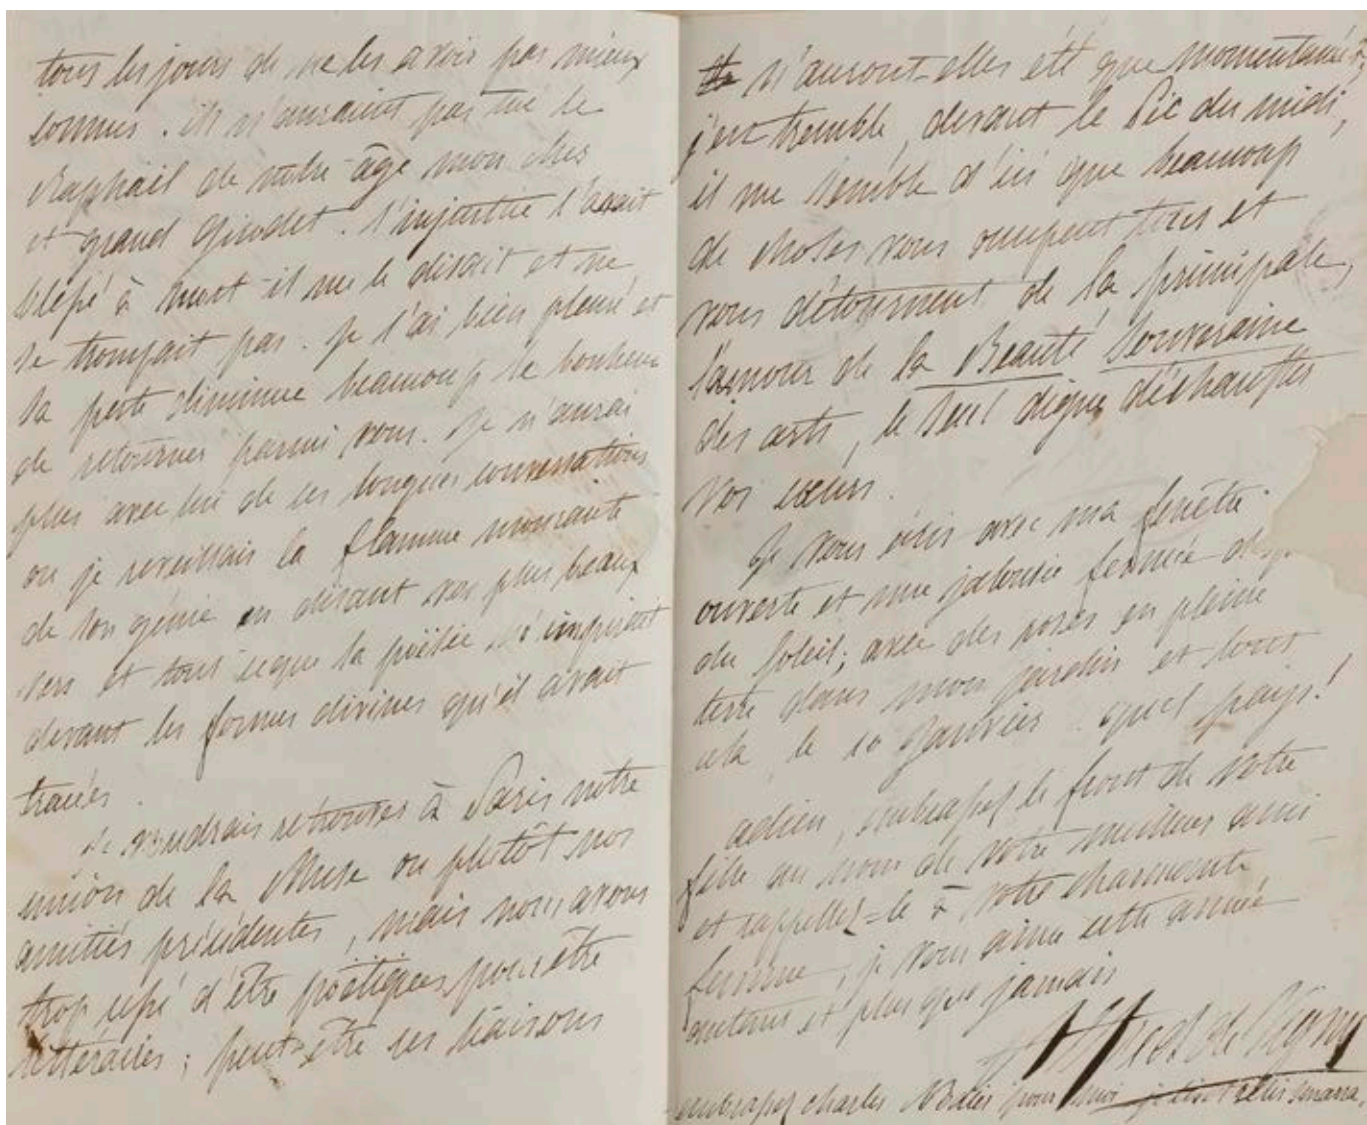 tous les jours de ne les avoir pas mieux
connus. ils n'auraient pas tué le
Raphaël de notre âge mon cher
et grand Girodet. l'injustice l'avait
blessé à mort il me le disait et ne
se trompait pas. je l'ai bien pleuré et
sa perte diminue beaucoup le bonheur
de retourner parmi vous. Je n'aurai
plus avec lui de ces longues conversations
ou je réveillais la flamme mourante
de son génie en disant vos plus beaux
vers et tout ce que la poësie m'inspirait
devant les formes divines qu'il avait
tracées.
Je voudrais retrouver à Paris notre
union de la Muse ou plutôt nos
amitiés précédentes, mais nous avons
trop cessé d'être poëtiques pour être
littéraires ; peut-être ces liaisons
n'auront-elles été que momentanées,
j'en tremble, devant le Pic du midi,
il me semble d'ici que beaucoup
de choses vous occupent tous et
vous détournent de la principale,
l'amour de la Beauté Souveraine
des arts, le seul digne d'échauffer
vos cœurs.
Je vous écris avec ma fenêtre
ouverte et une jalousie fermée
du soleil ; avec des roses en pleine
terre dans mon jardin et tout
cela le 10 Janvier. quel pays!
adieu, embrassez le front de votre
fille au nom de votre meilleur ami
et rappellez=le à votre charmante
femme, je vous aime cette année
autant et plus que jamais
Alfred de Vigny
embrassez charles Nodier pour moi je lis et relis smarra.